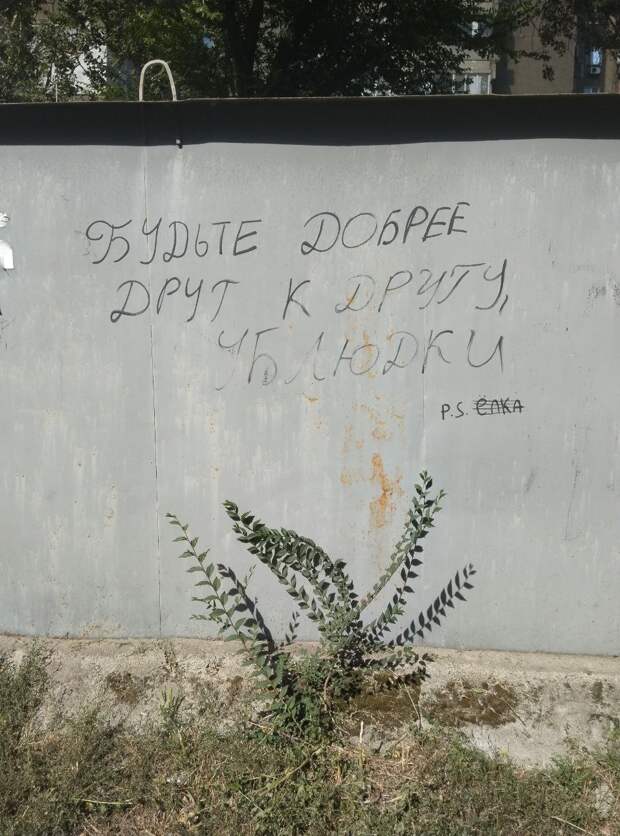 БУДЬТЕ ДОБРЕЕ
ДРУГ К ДРУГУ,
УБЛЮДКИ
P.S. ЁЛКА